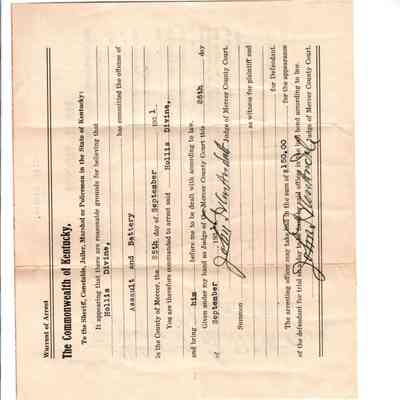 Warrant of Arrest
The Commonwealth of Kentucky,
To the Sheriff, Constable, Jailer, Marshal or Policeman in the State of Kentucky:
It appearing that there are reasonable grounds for believing that
Hollis Divine,
has committed the offense of
Assault and Battery
in the County of Mercer, the 25th day of September 1931.
You are therefore commanded to arrest said Hollis Divine,
and bring him before me to be dealt with according to law.
Given under my hand as Judge of the Mercer County Court this 26th day
of September 193
Judge of Mercer County Court.
Summon as witness for plaintiff and
for Defendant.
The arresting officer may take bail in the sum of $150.00 for the appearance
of the defendant for trial bond according to law.
Judge of Mercer County Court.